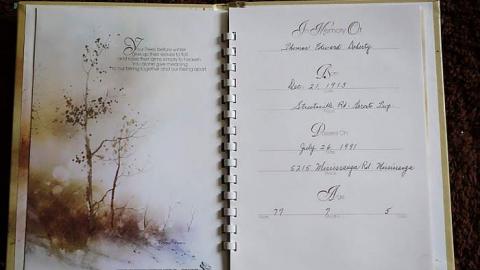 Your Trees before winter
give up their leaves to fall
and raise their arms simply to heaven.
You alone give meaning
to our being together and our being apart.
In Memory Of
Thomas Edward Doherty
Born
Dec. 21, 1913
Streetsville Rd. Toronto Twp.
Passed On
July 26, 1991
5215 Mississauga Rd. Mississauga
Age
77 7 5